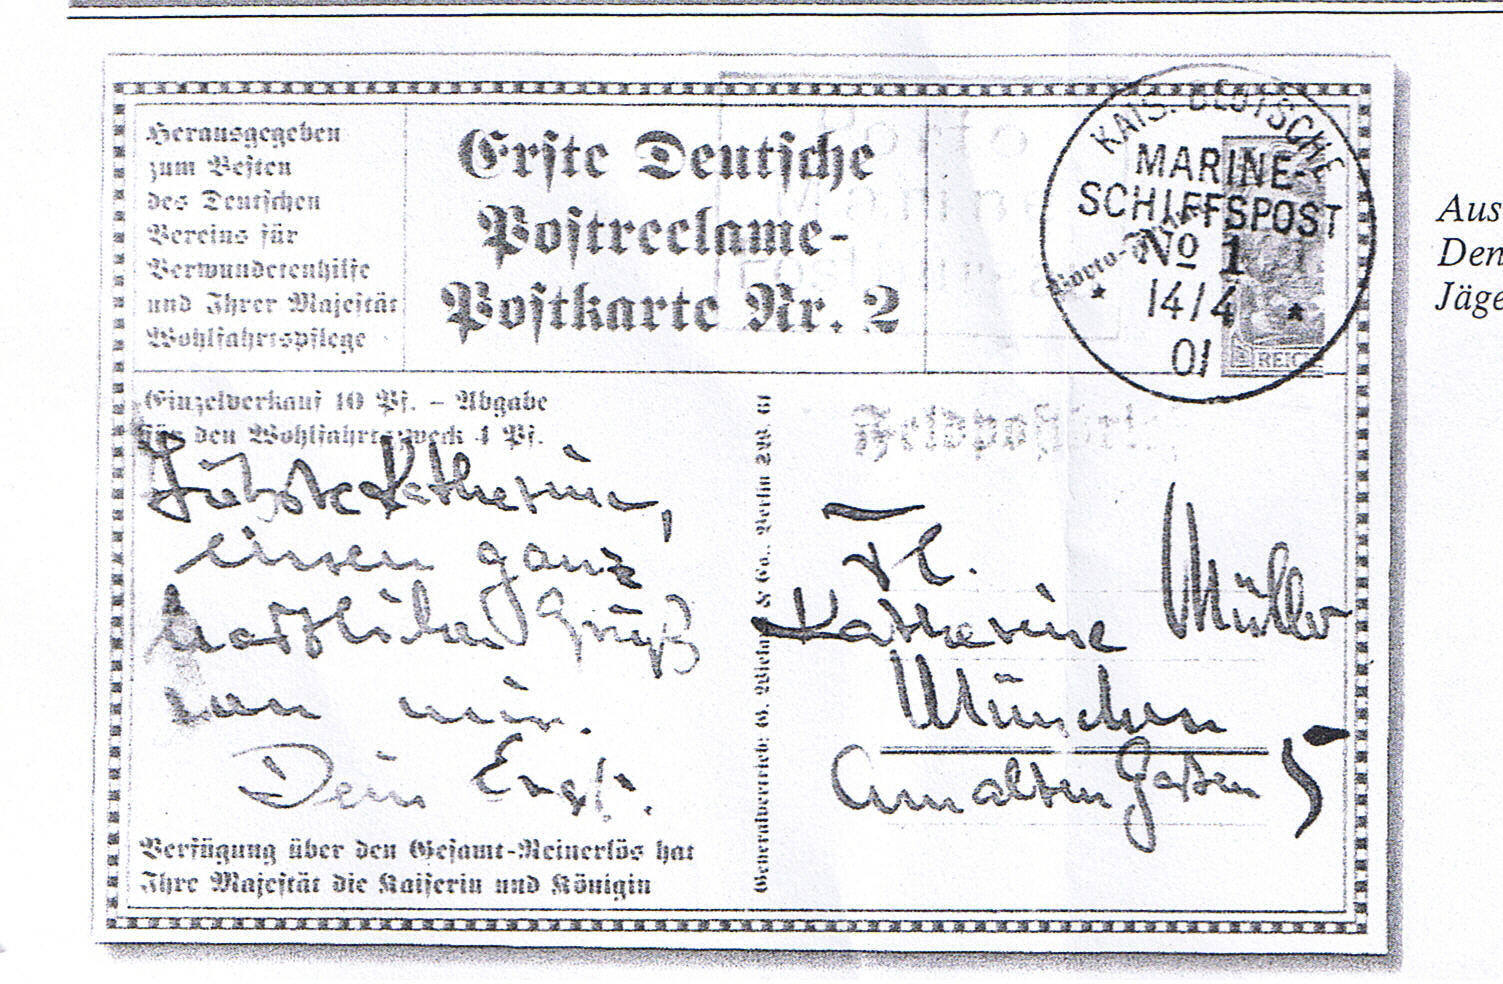 Herausgegeben
zum Besten
des Deutschen
Vereins für
Verwundetenhilfe
und Ihrer Majestät
Wohlfahrtspflege
Erste Deutsche
Postreclame-
Postkarte Nr. 2
KAIS. DEUTSCHE
MARINE-
SCHIFFSPOST
No 1
14/4
01
REICH
Einzelverkauf 10 Pf. – Abgabe
für den Wohlfahrtszweck 4 Pf.
Feldpostbrief
Katherine,
einen ganz
herzlichen Gruß
von mir.
Dein
Verfügung über den Gesamt-Reinerlös hat
Ihre Majestät die Kaiserin und Königin
Generalvertrieb: G. & Co., Berlin SW. 61
Fl.
Katherine Müller
München
Am alten Garten 5
Aus
Den
Jäge